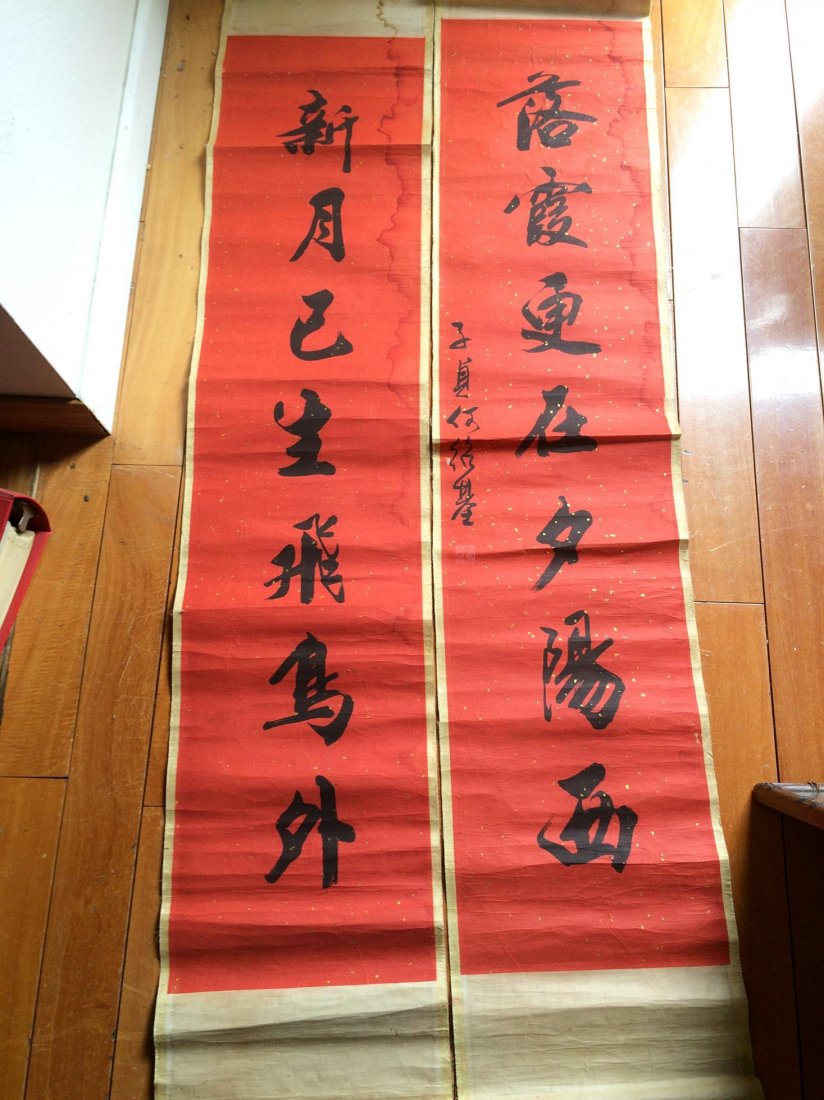 落霞更在夕陽西
子貞何紹基
新月已生飛鳥外